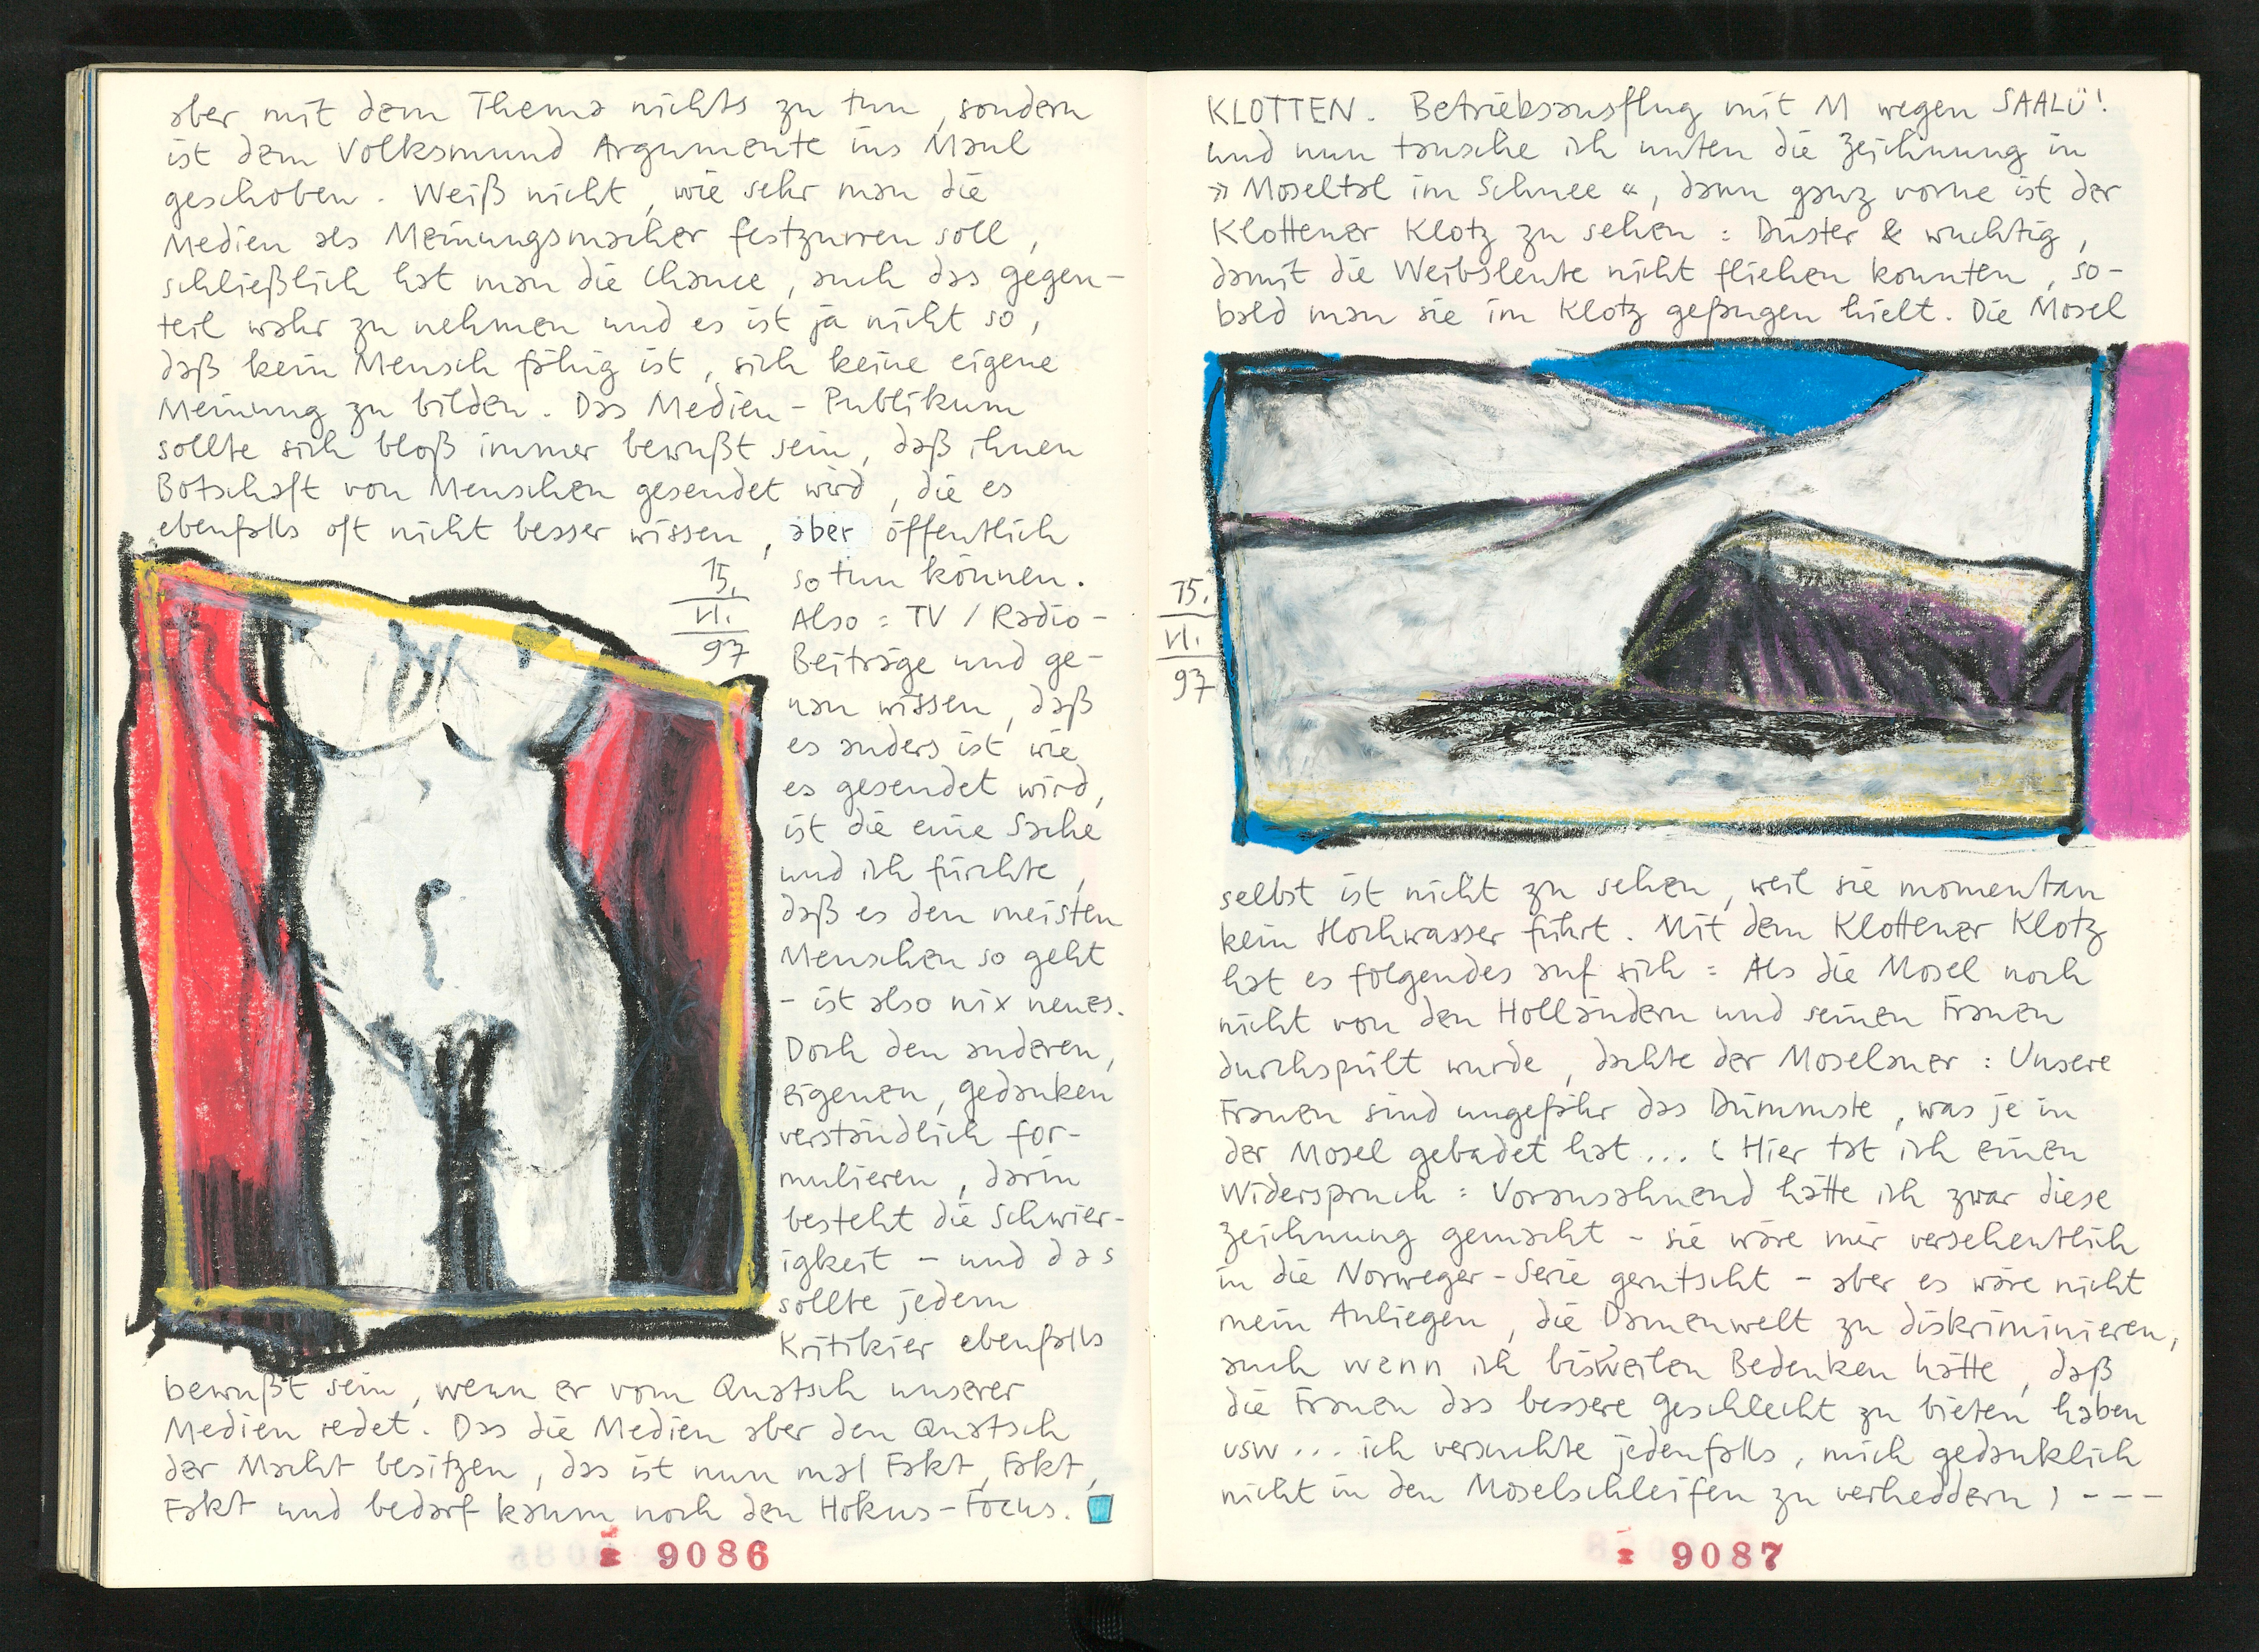 aber mit dem Thema nichts zu tun, sondern
ist dem Volksmund Argumente ins Maul
geschoben. Weiß nicht, wie sehr man die
Medien als Meinungsmacher festzurren soll,
schließlich hat man die Chance, auch das gegen-
teil wahr zu nehmen und es ist ja nicht so,
daß kein Mensch fähig ist, sich keine eigene
Meinung zu bilden. Das Medien-Publikum
sollte sich bloß immer bewußt sein, daß ihnen
Botschaft von Menschen gesendet wird, die es
ebenfalls oft nicht besser wissen, aber öffentlich
so tun können.
15.
VI.
97
Also: TV / Radio-
Beiträge und ge-
nau wissen, daß
es anders ist wie
es gesendet wird,
ist die eine Sache
und ich fürchte,
daß es den meisten
Menschen so geht
- ist also nix neues.
Doch den anderen,
eigenen, gedanken
verständlich for-
mulieren, darin
besteht die Schwier-
igkeit - und das
sollte jedem
Kritikier ebenfalls
bewußt sein, wenn er vom Quatsch unserer
Medien redet. Das die Medien aber den Quatsch
der Macht besitzen, das ist nun mal Fakt, Fakt,
Fakt und bedarf kaum noch den Hokus-Focus.
9086
KLOTTEN. Betriebsausflug mit M wegen SAALÜ!
und nun tausche ich unten die Zeichnung in
»Moseltal im Schnee«, dann ganz vorne ist der
Klottener Klotz zu sehen: Düster & wuchtig,
damit die Weibsleute nicht fliehen konnten, so-
bald man sie im Klotz gefangen hielt. Die Mosel
15.
VI.
97
selbst ist nicht zu sehen, weil sie momentan
kein Hochwasser führt. Mit dem Klottener Klotz
hat es folgendes auf sich: Als die Mosel noch
nicht von den Holländern und seinen Frauen
durchspült wurde, dachte der Moselaner: Unsere
Frauen sind ungefähr das Dümmste, was je in
der Mosel gebadet hat... (Hier tat ich einen
Widerspruch: Vorausahnend hätte ich zwar diese
Zeichnung gemacht - sie wäre mir versehentlich
in die Norweger-Serie gerutscht - aber es wäre nicht
mein Anliegen, die Damenwelt zu diskriminieren,
auch wenn ich bisweilen Bedenken hätte, daß
die Frauen das bessere Geschlecht zu bieten haben
usw... ich versuchte jedenfalls, mich gedanklich
nicht in den Moselschleifen zu verheddern) ---
9087